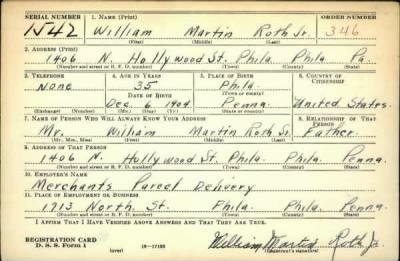 SERIAL NUMBER 1. NAME (Print) ORDER NUMBER
1542 William Martin Roth Jr. 346
(First) (Middle) (Last)
2. ADDRESS (Print)
1406 N. Hollywood St. Phila Phila Pa.
(Number and street or R. F. D. number) (Town) (County) (State)
3. TELEPHONE 4. AGE IN YEARS 5. PLACE OF BIRTH 6. COUNTRY OF CITIZENSHIP
None 35 Phila.
DATE OF BIRTH (Town or county)
Dec. 6 1904 Penna. United States.
(Exchange) (Number) (Mo.) (Day) (Yr.) (State or country)
7. NAME OF PERSON WHO WILL ALWAYS KNOW YOUR ADDRESS 8. RELATIONSHIP OF THAT PERSON
Mr. William Martin Roth Sr. Father.
(Mr., Mrs., Miss) (First) (Middle) (Last)
9. ADDRESS OF THAT PERSON
1406 N. Hollywood St. Phila. Phila. Penna.
(Number and street or R. F. D. number) (Town) (County) (State)
10. EMPLOYER'S NAME
Merchants Parcel Delivery
11. PLACE OF EMPLOYMENT OR BUSINESS
1713 North. St. Phila. Phila. Penna.
(Number and street or R. F. D. number) (Town) (County) (State)
I AFFIRM THAT I HAVE VERIFIED ABOVE ANSWERS AND THAT THEY ARE TRUE.
REGISTRATION CARD
D. S. S. Form 1 (over) 16—17105 William Martin Roth Jr.
(Registrant's signature)